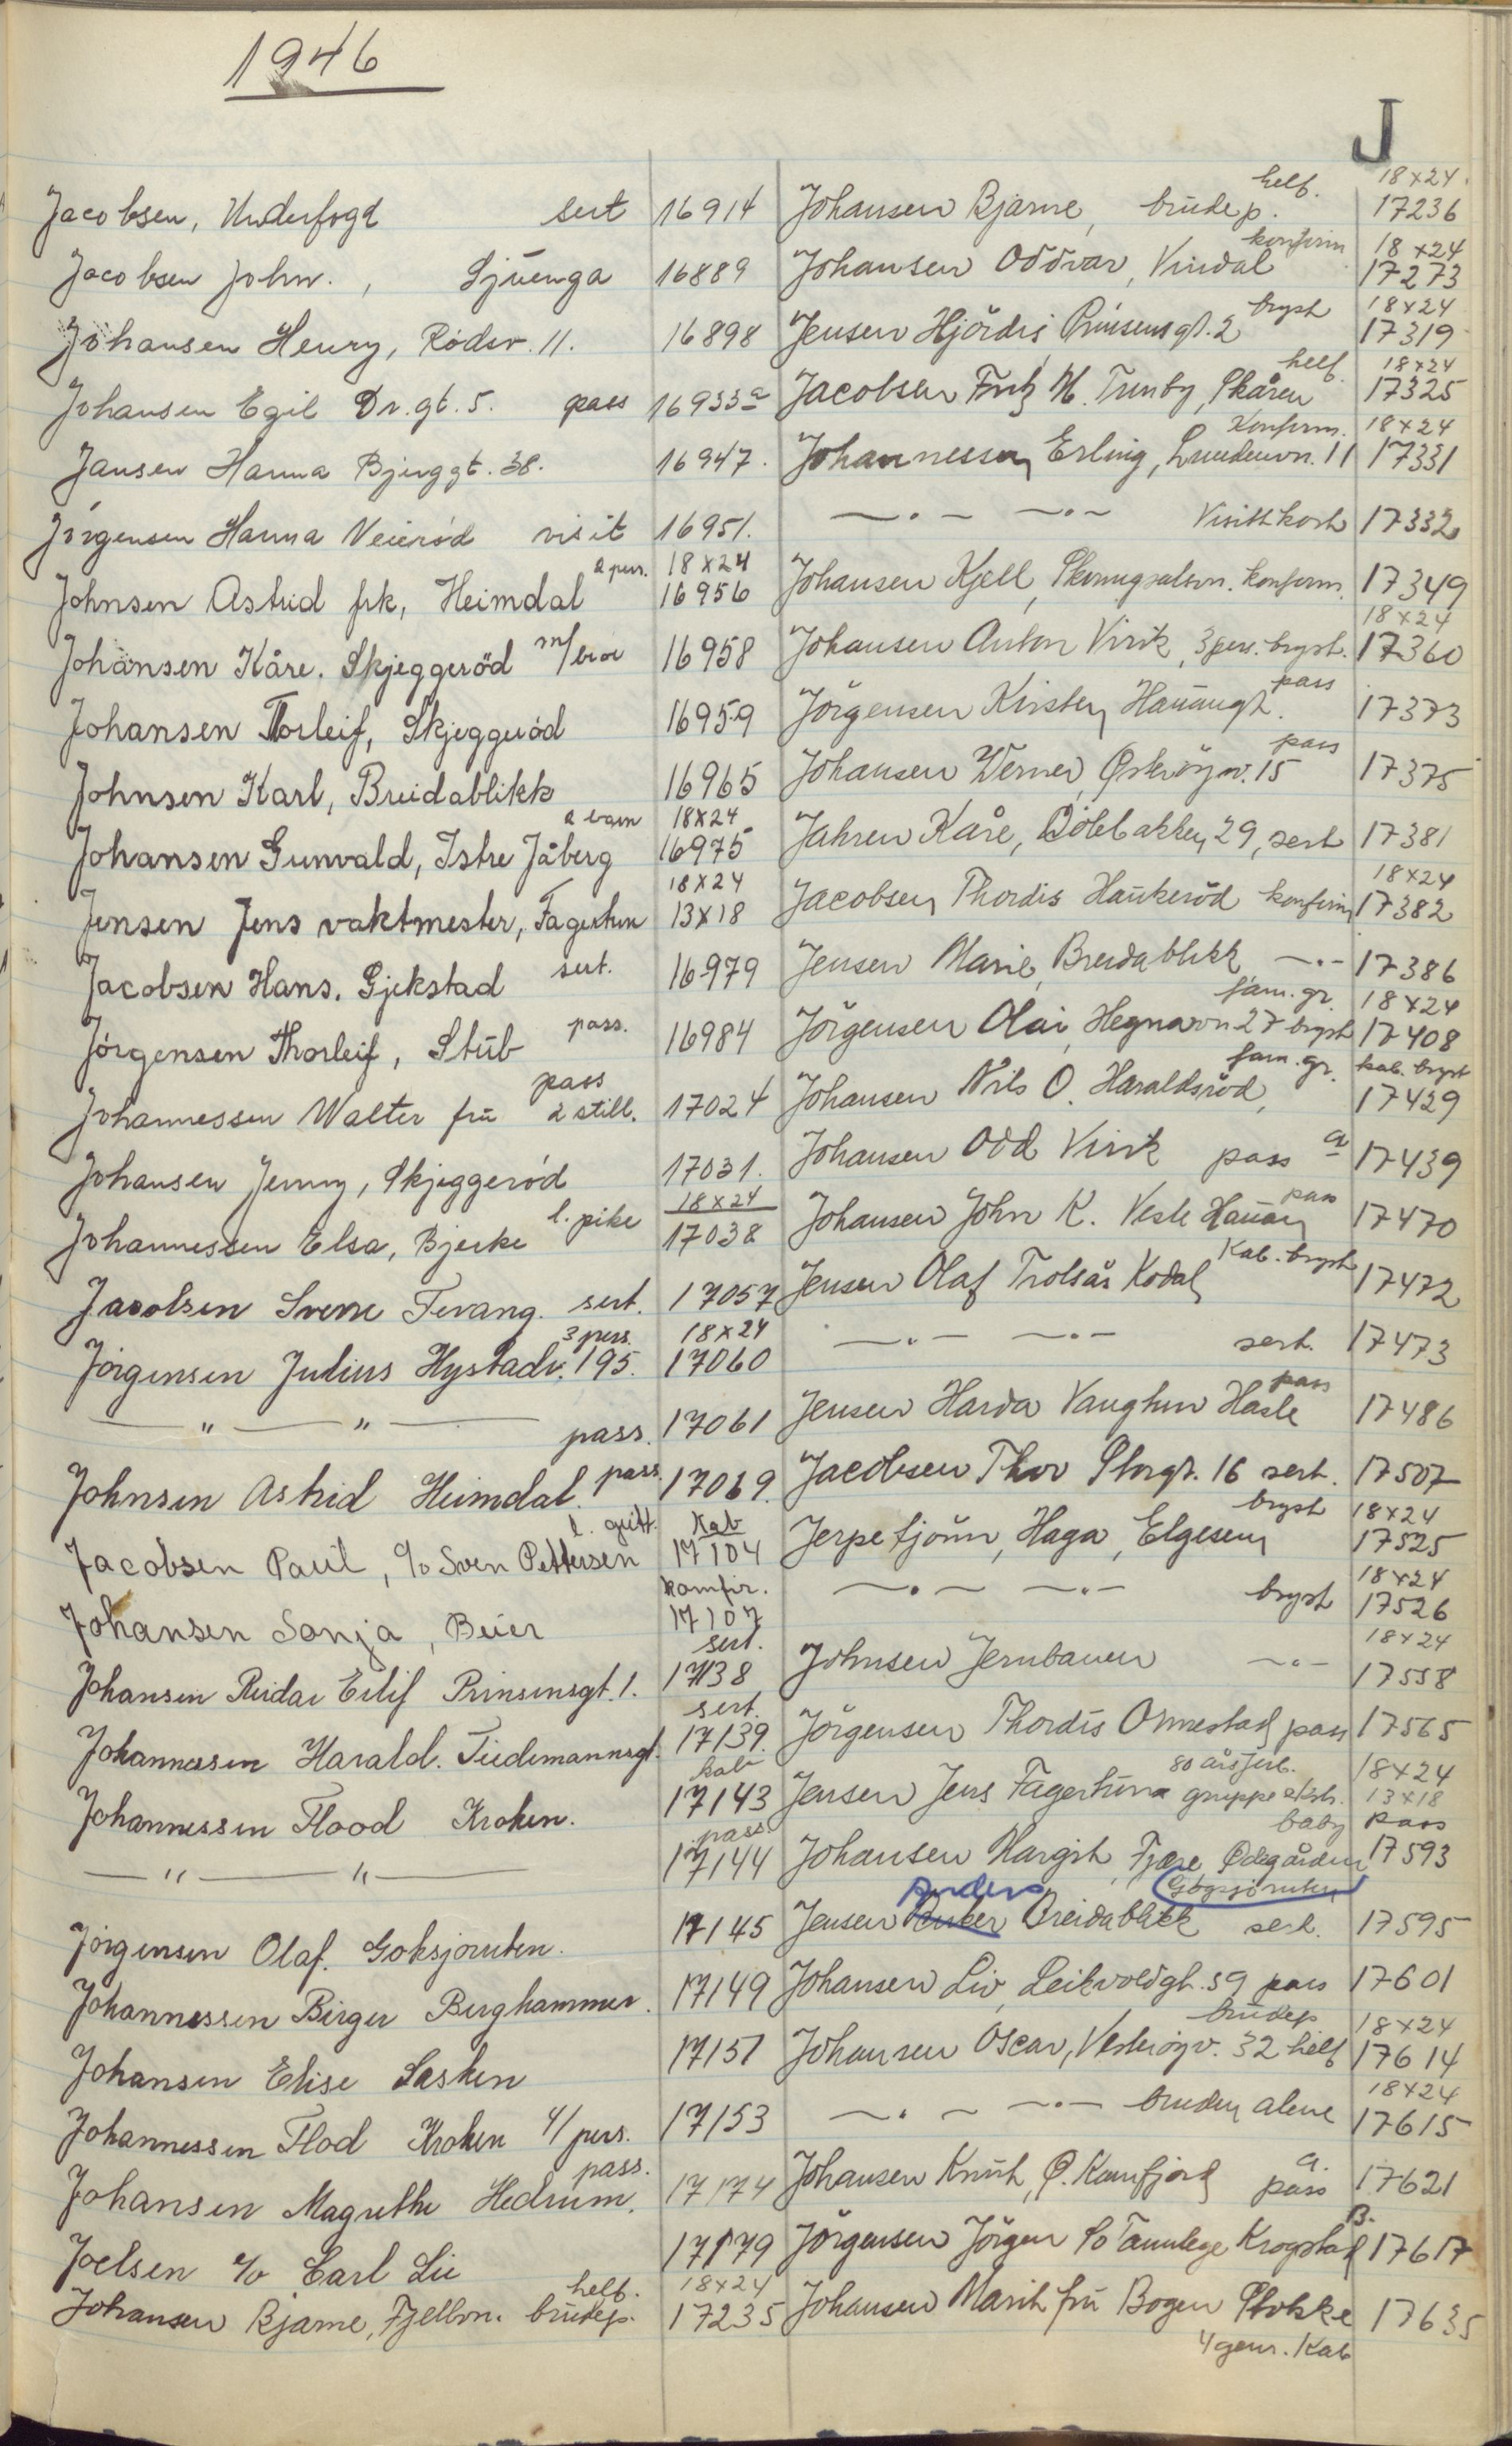 1946
J
Jacobsen, Underfogd sert 16914
Jacobsen John. , Sjuenga 16889
Johansen Henry, Rödsv. 11. 16898
Johansen Egil Dr.gt. 5. pass 16933a
Jansen Hanna Bjerggt. 38. 16947.
Jörgensen Hanna Veieröd visit 16951.
2 pers. 18x24
Johnsen Astrid frk, Heimdal 16956
Johansen Kåre. Skjeggeröd m/bror 16958
Johansen Thorleif, Skjeggeröd 16959
Johnsen Karl, Breidablikk 16965
2 barn 18x24
Johansen Gunvald, Istre Jåberg 16975
18x24
Jensen Jens vaktmester, Fagertun 13x18
Jacobsen Hans. Gjekstad sert. 16979
Jörgensen Thorleif, Stub pass. 16984
pass
Johannessen Walter fru 2 still. 17024
Johansen Jenny, Skjeggeröd 17031.
18x24
Johannessen Elsa, Bjerke l. pike 17038
Jacobsen Sverre Tevang. sert. 17057
3 pers. 18x24
Jörgensen Julius Hystadv. 195. 17060
— " — " — pass. 17061
Johnsen Astrid Heimdal. pass. 17069.
l. gutt. Kab
Jacobsen Paul, c/o Sven Pettersen 17104
komfir.
Johansen Sonja, Beier 17107
sert.
Johansen Reidar Eilif Prinsensgt. 1. 17138
sert.
Johannessen Harald. Tiedemannsgt. 17139.
kab
Johannessen Flood Kroken. 17143
pass.
— " — " — 17144
Jörgensen Olaf. Goksjoruten. 17145
Johannessen Birger Berghammer. 17149
Johansen Elise Lasken 17151
Johannessen Flod Kroken 4/ pers. 17153
pass.
Johansen Magrethe Hedrum. 17174
Joelsen c/o Carl Lie 17179
helf. 18x24
Johansen Bjarne, Fjellvn. brudep. 17235
helf. 18x24.
Johansen Bjarne, brudep. 17236
konfirm 18x24
Johansen Oddvar, Vindal 17273
bryst 18x24
Jensen Hjördis Prinsensgt. 2 17319
helf. 18x24
Jacobsen Fritz H. Trenby, Skåren 17325
Konfirm. 18x24
Johannessen Erling, Lundenvn. 11 17331
— . — — . — Visittkort 17332
Johansen Kjell, konfirm. 17349
18x24
Johansen Anton Virik, 3 pers. bryst. 17360
pass
Jörgensen Kirsten Haunugt. 17373
pass
Johansen Werner, Österöyv. 15 17375
Jahren Kåre, Bölebakken 29, sert 17381
18x24
Jacobsen Thordis Haukeröd konfirm 17382
Jensen Marie, Breidablikk — . — 17386
fam. gr. 18x24
Jörgensen Olai, Hegnavn 27 bryst 17408
fam. gr. kab. bryst
Johansen Nils O. Haraldsröd, 17429
Johansen Odd Virik pass a 17439
pass
Johansen John K. Vesle Hauan 17470
Kab. bryst
Jensen Olaf Trolsås Kodal 17472
— . — — . — sert. 17473
pass
Jensen Harda Vaughun Hasle 17486
Jacobsen Thor Storgt. 16 sert. 17507
bryst 18x24
Jerpetjönn, Haga, Elgesen 17525
18x24
— . — — . — bryst 17526
18x24
Johnsen Jernbanen — . — 17558
Jörgensen Thordis Ormestad pass 17565
80 års jub. 18x24
Jensen Jens Fagertun gruppe ekstr. 13x18
baby pass
Johansen Margit, Fjære, Ödegården 17593
Anders Gogsjöruten
Jensen Breidablikk sert. 17595
Johansen Liv, Leikvoldgt. 39 pass 17601
brudep 18x24
Johansen Oscar, Vesteröyv. 32 helf 17614
18x24
— . — — . — bruden alene 17615
Johansen Knut, Ö. Kamfjord pass a. 17621
B.
Jörgensen Jörgen c/o Tannlege Krogstad 17617
Johansen Marit fru Bogen Stokke 17635
4 gener. Kab